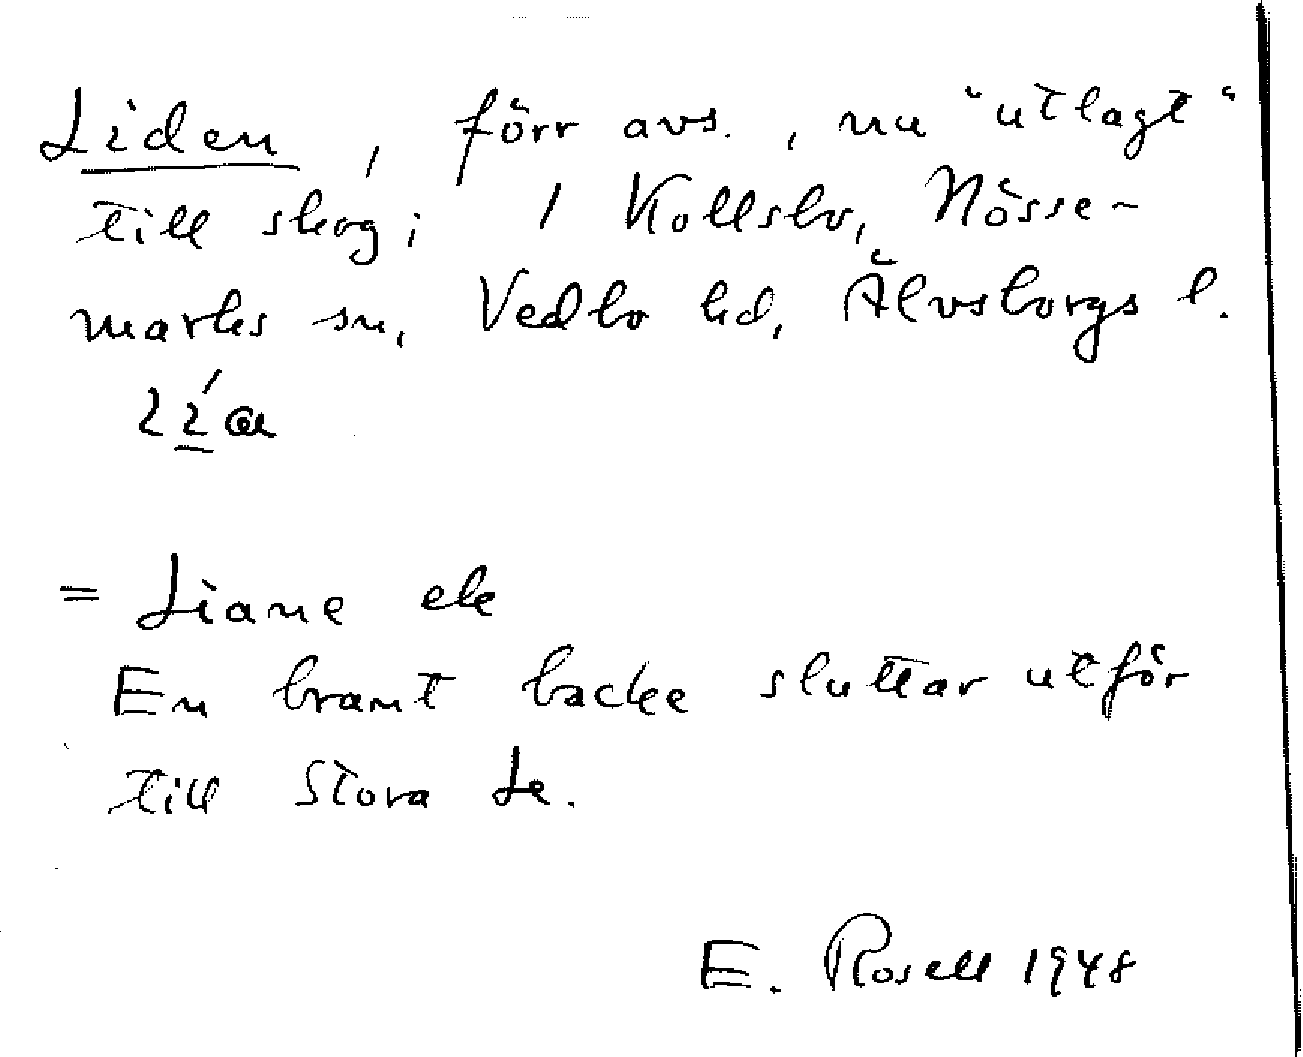 Liden, förr avs., nu "utlagt"
till skog i 1 Kollsbo, Nösse-
marks sn, Vedbo hd, Älvsborgs l.
= Liane ek
En brant backe sluttar utför
till Stora Le.
E. Rosell 1948